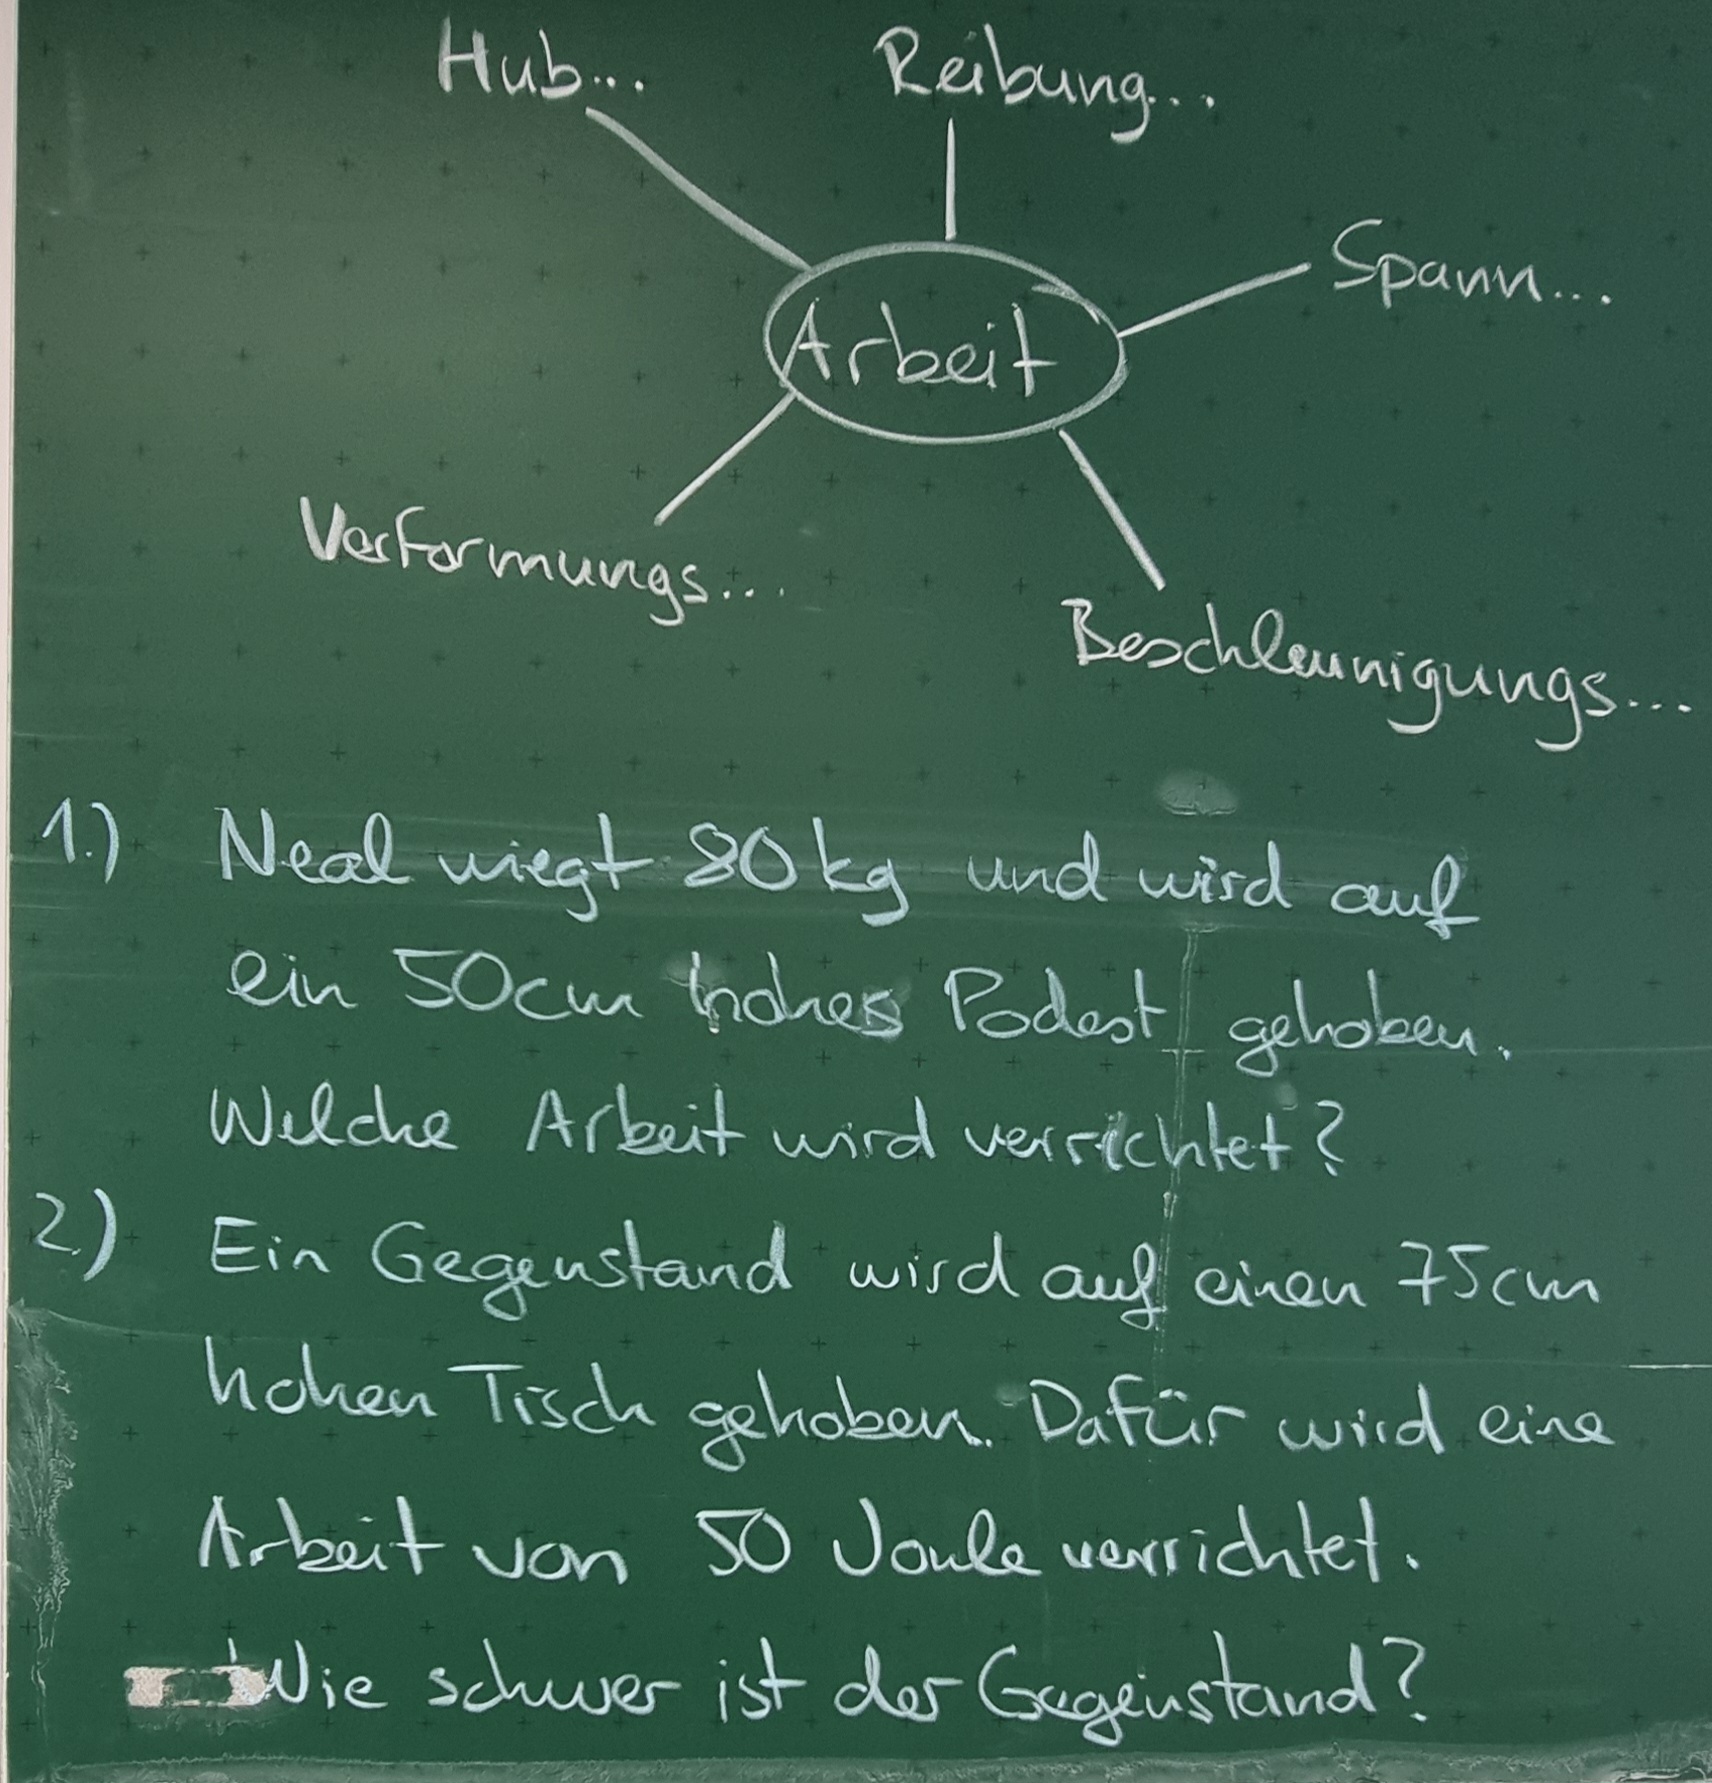 Hub...
Reibung...
Spann...
Arbeit
Verformungs...
Beschleunigungs...
1.) Neal wiegt 80kg und wird auf
ein 50cm hohes Podest gehoben.
Welche Arbeit wird verrichtet?
2.) Ein Gegenstand wird auf einen 75cm
hohen Tisch gehoben. Dafür wird eine
Arbeit von 50 Joule verrichtet.
Wie schwer ist der Gegenstand?